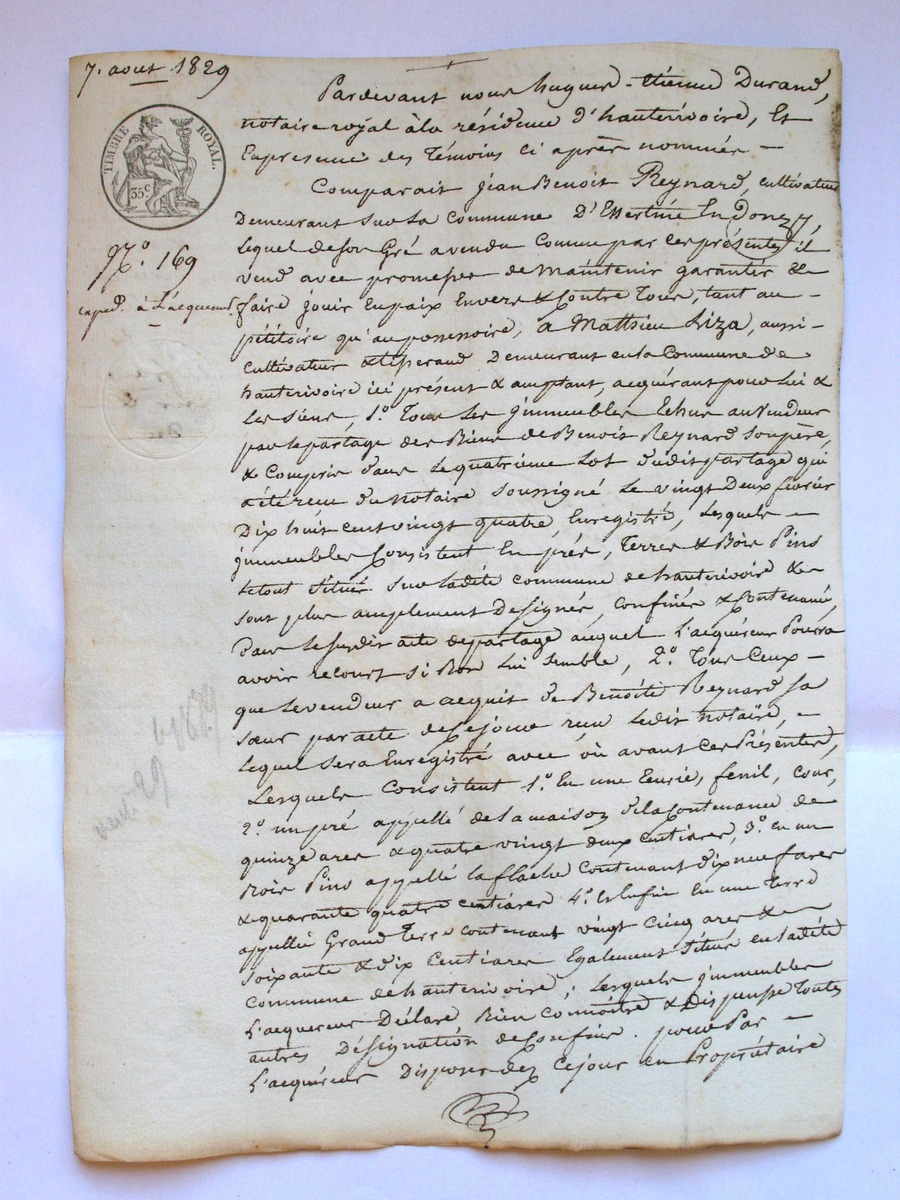 7. aout 1829
TIMBRE ROYAL.
35c
No. 169
exped. à L'acquereur
Pardevant nous hugues-étienne Durand,
notaire royal à la résidence d'hauterivoire, Et
Enpresence des Témoins ci après nommés —
Comparait jean Benoit Reynard, cultivateur
Demeurant sur la commune D'Essertine En Donzy,
Lequel de son Gré a vendu comme par ces présentes il
vend avec promesses de maintenir garantir &
faire jouir En paix Envers & Contre Tous, tant au —
pétitoire qu'au possessoire, a Mathieu Liza, aussi
cultivateur & tisserand Demeurant en la Commune de
hauterivoire ici présent & acceptant, acquérant pour Lui &
Les siens, 1o. Tous Les jmmeubles Echus au Vendeur
par le partage des Biens de Benoit Reynard Son père,
& Compris dans Le quatrième Lot dudit partage qui
a été reçu du notaire soussigné Le vingt Deux fevrier
Dix huit cent vingt quatre, Enregistré, Lesquels —
jmmeubles Consistent En prés, Terres & Bois Pins
Le tout situé sur ladite commune de hauterivoire &
sont plus amplement Designés, confinés & Contenancés
Dans le susdit acte de partage auquel L'acquéreur Pourra
avoir recours si Bon Lui semble, 2o. Tous Ceux —
que Le vendeur a acquit de Benoîte Reynard sa
sœur par acte de Ce jour reçu Ledit notaire, —
Lequel sera Enregistré avec où avant Ces Présentes,
Lesquels Consistent 1o. En une Ecurie, fenil, cour,
2o. un pré appellé de la maison de la Contenance de
quinze ares & quatre vingt deux centiares, 3o. en un
Bois Pins appellé la flache Contenant dix neuf ares
& quarante quatre centiares 4o. Et Enfin En une Terre
appellée Grand Terre contenant vingt Cinq ares &
soixante & dix Centiares Egalement située en ladite
commune de hauterivoire; Lesquels jmmeubles
L'acquereur Déclare Bien Connoitre & dispense toutes
autres Désignation de Confins. pour Par —
L'acquéreur Disposer dez Ce jour en Propriétaire